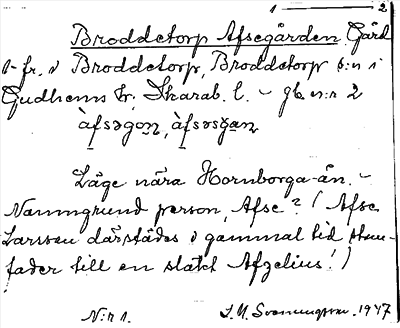 1 — 2
Broddetorp Afsegården Gård
i Broddetorp, Broddetorp s:n i
Gudhems hr, Skarab. l. – gb n:r 2
àfsəgon, àfsəsgan
Läge nära Hornborga-ån. –
Namngrund person, Afse? (Afse
Larsson därstädes i gammal tid stam-
fader till en släkt Afzelius!)
N:r 1.
1947